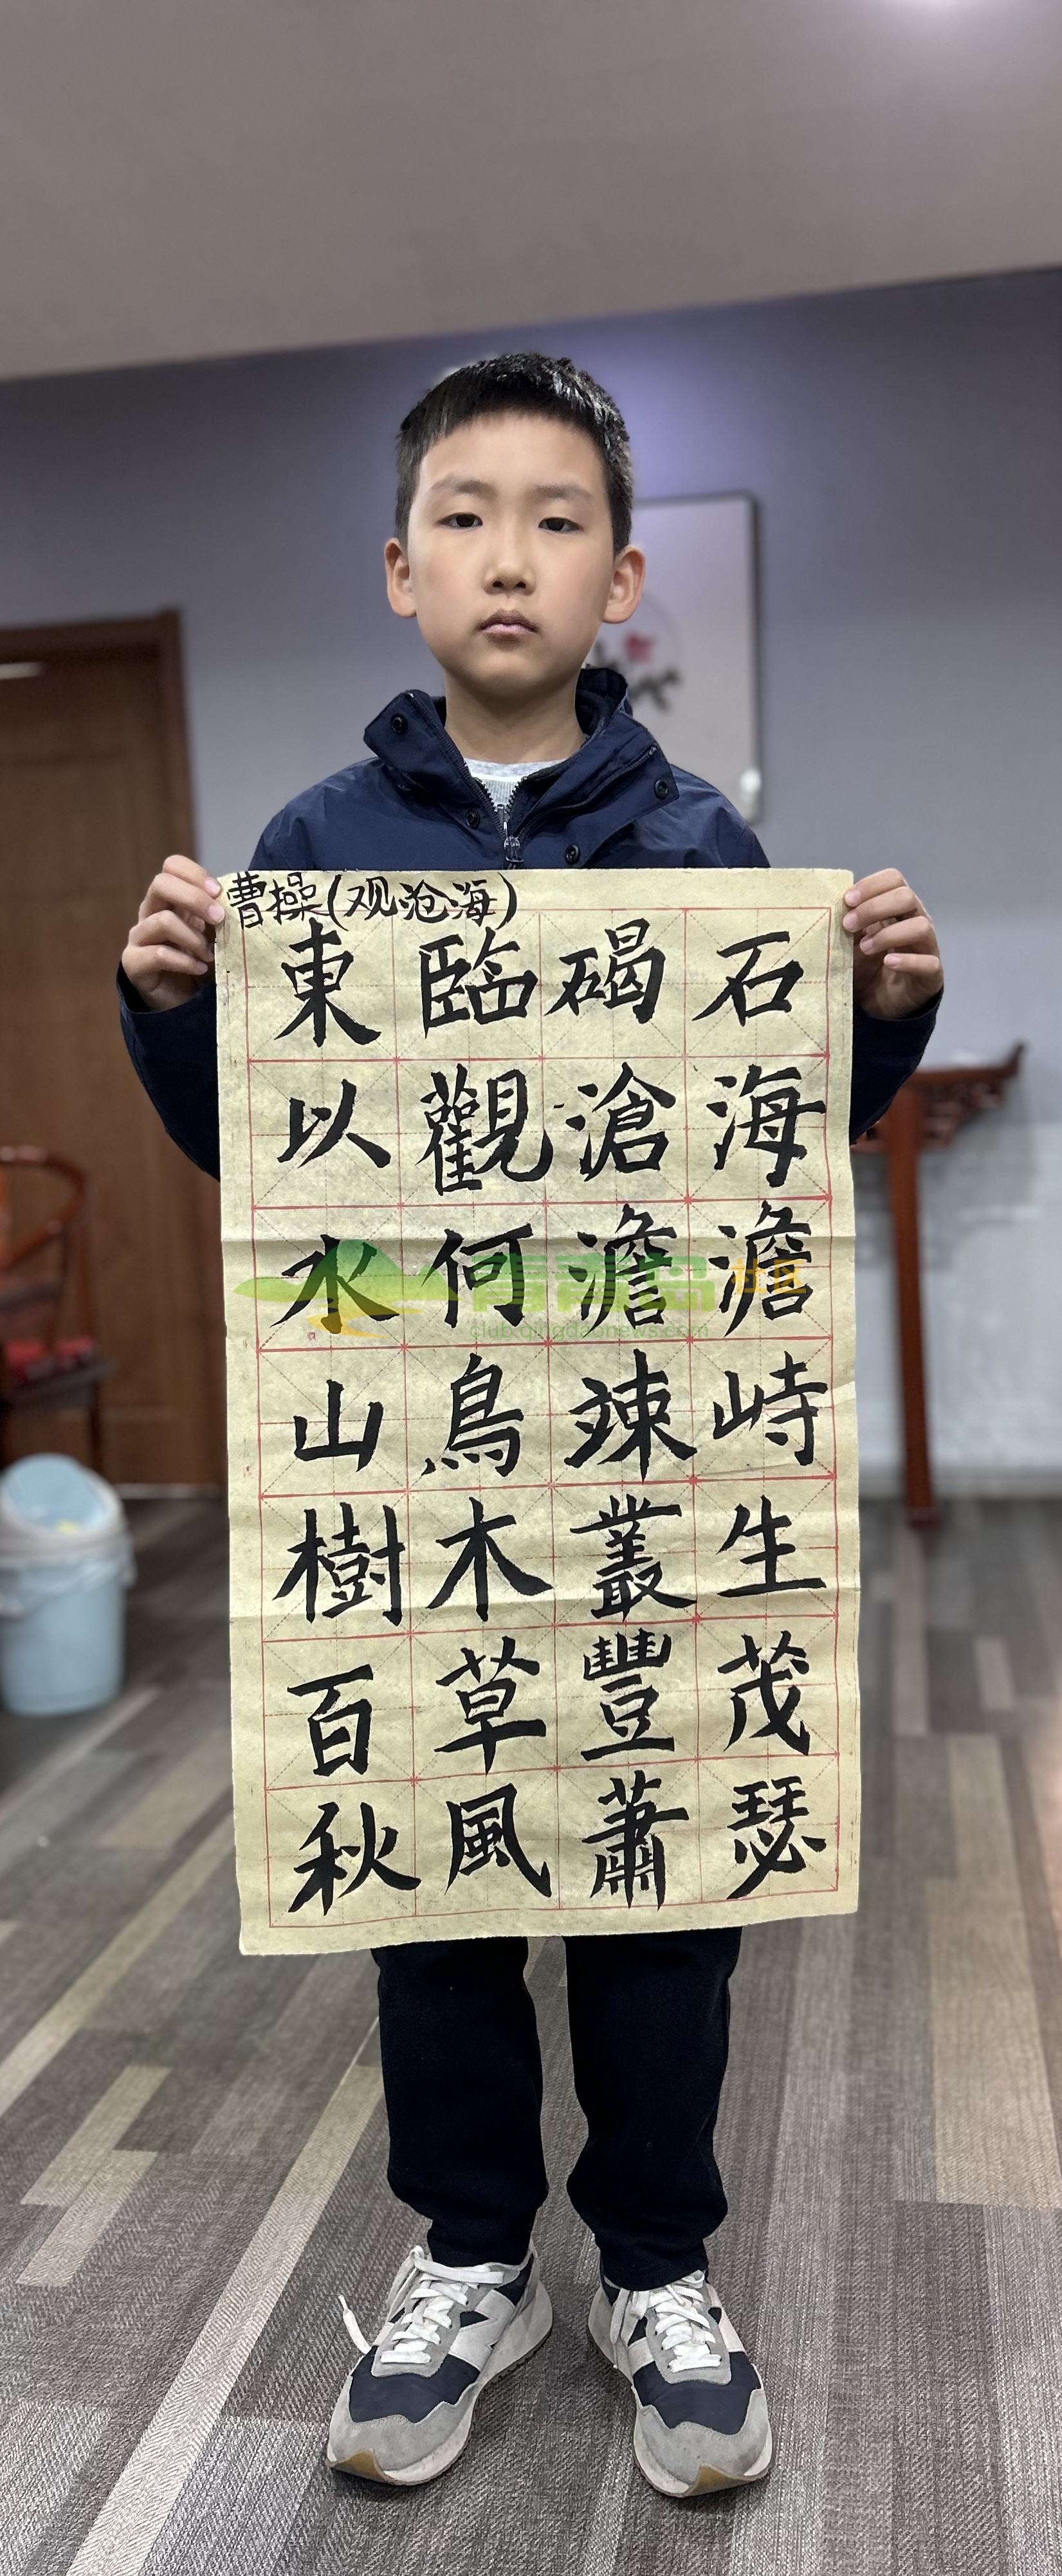 曹操(观沧海)
東臨碣石
以觀滄海
水何澹澹
山鳥竦峙
樹木叢生
百草豐茂
秋風蕭瑟
青青岛社区
club.qingdaonews.com